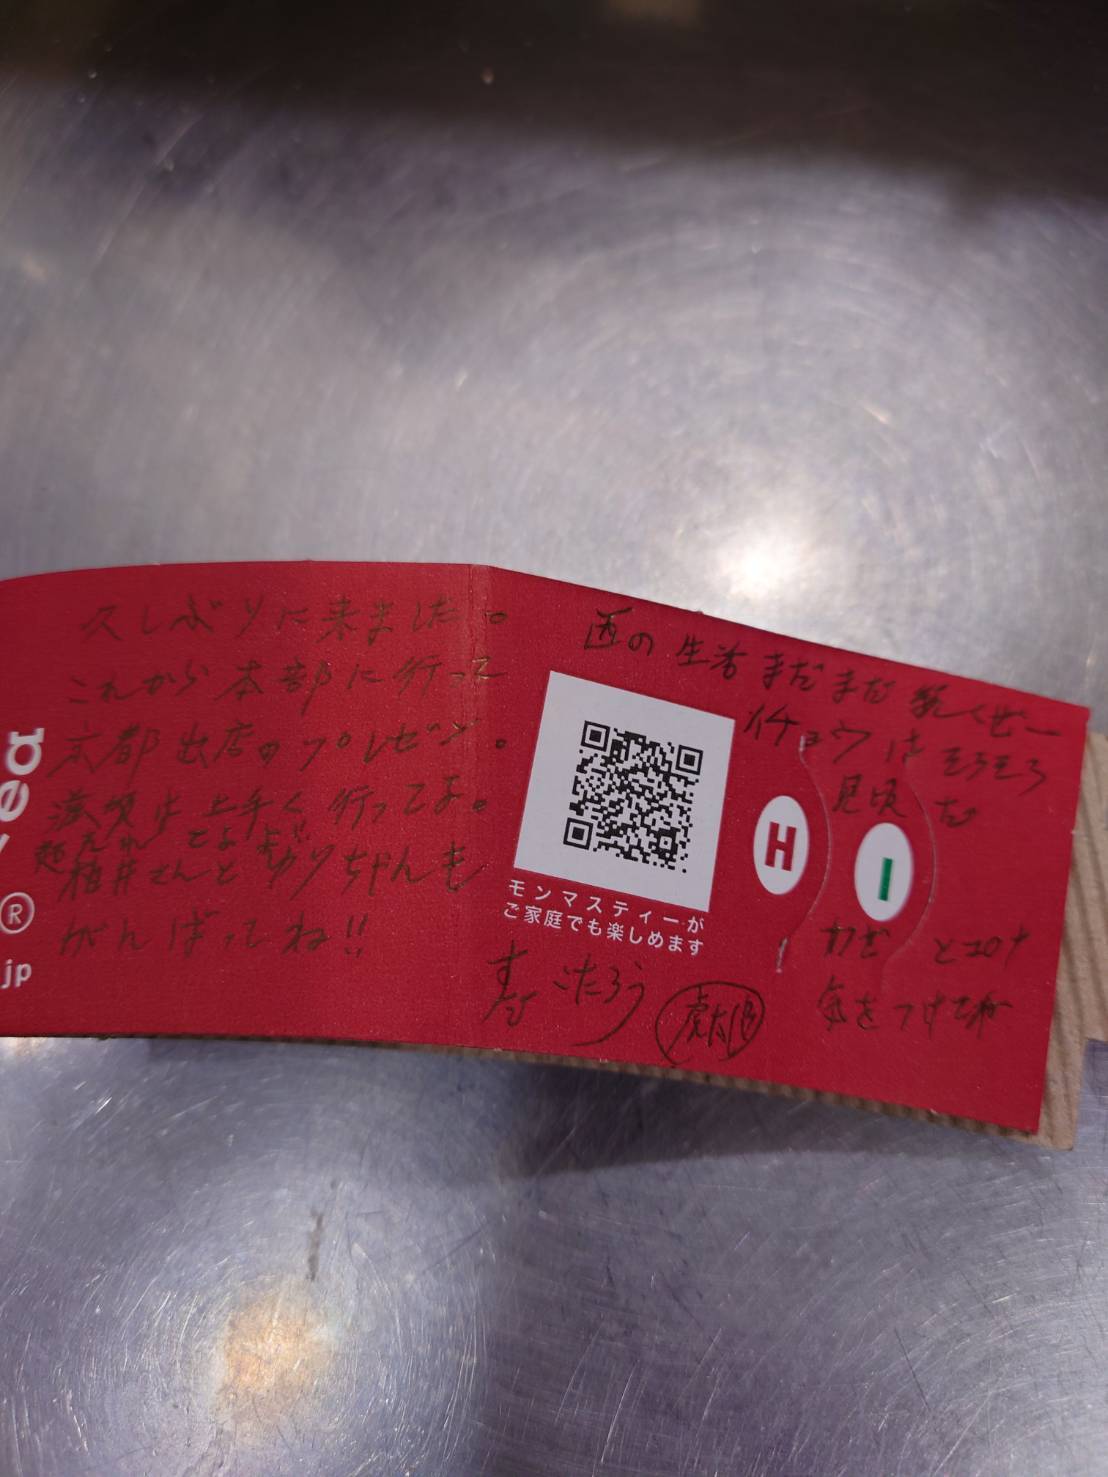 久しぶりに来ました。
これから本部に行って
京都出店のプレゼン。
上手く行ってよ。
柏井さんとゆりちゃんも
がんばってね!!
西の生活まだまだ続くぜー
イチョウはそろそろ
見頃だ
H I
かぜとコロナ
気をつけてね
モンマスティーが
ご家庭でも楽しめます
こたろう
虎太郎
ea
®
.jp